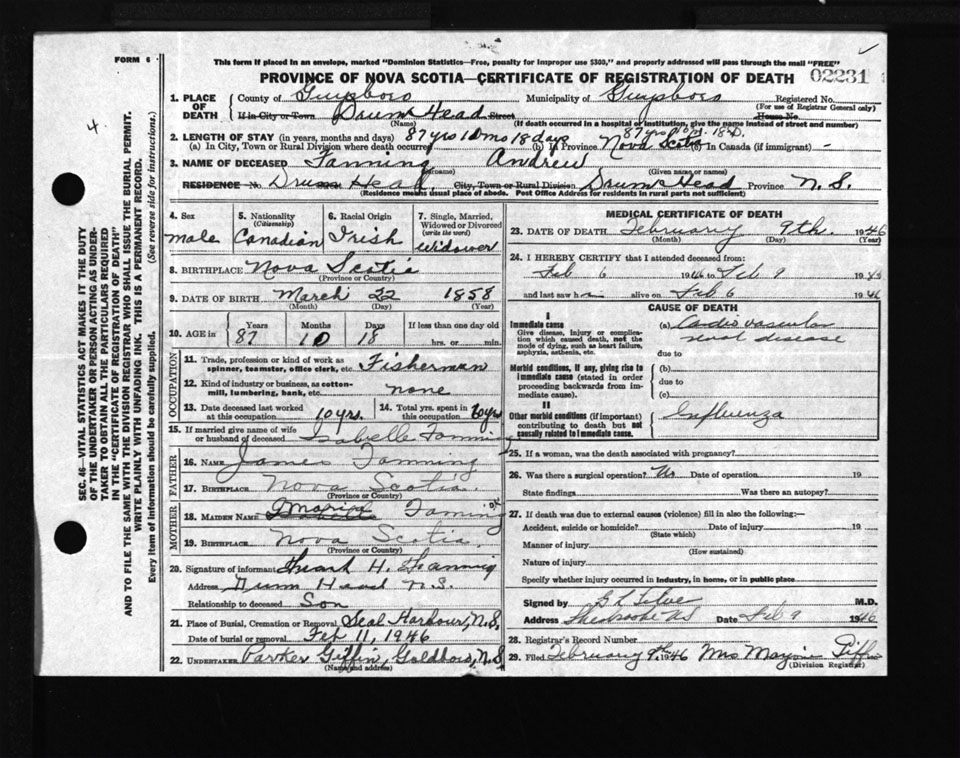 FORM 6
This form if placed in an envelope, marked "Dominion Statistics—Free, penalty for improper use $300," and properly addressed will pass through the mail "FREE"
PROVINCE OF NOVA SCOTIA—CERTIFICATE OF REGISTRATION OF DEATH 02231
4
1. PLACE OF DEATH County of Guysboro Municipality of Guysboro Registered No.
(For use of Registrar General only)
If in City or Town Drum Head Street House No.
(Name) (If death occurred in a hospital or institution, give the name instead of street and number)
2. LENGTH OF STAY (in years, months and days) 87 yrs 10 mo 18 days 87 yrs 10 m. 18 D.
(a) In City, Town or Rural Division where death occurred (b) In Province Nova Scotia (c) In Canada (if immigrant) -
3. NAME OF DECEASED Fanning Andrew
(Surname) (Given name or names)
RESIDENCE No. Drum Head City, Town or Rural Division Drum Head Province N.S.
(Residence means usual place of abode. Post Office Address for residents in rural parts not sufficient)
4. Sex Male
5. Nationality (Citizenship) Canadian
6. Racial Origin Irish
7. Single, Married, Widowed or Divorced (write the word) Widower
8. BIRTHPLACE Nova Scotia
(Province or Country)
9. DATE OF BIRTH March 22 1858
(Month) (Day) (Year)
10. AGE in Years 87 Months 10 Days 18 If less than one day old hrs. or min.
OCCUPATION
11. Trade, profession or kind of work as spinner, teamster, office clerk, etc. Fisherman
12. Kind of industry or business, as cotton-mill, lumbering, bank, etc. none
13. Date deceased last worked at this occupation 10 yrs.
14. Total yrs. spent in this occupation 60 yrs
15. If married give name of wife or husband of deceased Isabelle Fanning
FATHER
16. NAME James Fanning
17. BIRTHPLACE Nova Scotia
(Province or Country)
MOTHER
18. MAIDEN NAME Fanning
19. BIRTHPLACE Nova Scotia
(Province or Country)
20. Signature of informant H. Fanning
Address Drum Head N.S.
Relationship to deceased Son
21. Place of Burial, Cremation or Removal Seal Harbour, N.S.
Date of burial or removal Feb 11, 1946
22. UNDERTAKER Parker Giffin, Goldboro, N.S
(Name and address)
MEDICAL CERTIFICATE OF DEATH
23. DATE OF DEATH February 9th. 1946
(Month) (Day) (Year)
24. I HEREBY CERTIFY that I attended deceased from:
Feb 6 1946 to Feb 9 19
and last saw h alive on Feb 6 1946
CAUSE OF DEATH
I
Immediate cause
Give disease, injury or complication which caused death, not the mode of dying, such as heart failure, asphyxia, asthenia, etc.
(a) Cardio vascular
renal disease
due to
Morbid conditions, if any, giving rise to immediate cause (stated in order proceeding backwards from immediate cause).
(b)
due to
(c)
II
Other morbid conditions (if important) contributing to death but not causally related to immediate cause.
Influenza
25. If a woman, was the death associated with pregnancy?
26. Was there a surgical operation? No Date of operation 19
State findings Was there an autopsy?
27. If death was due to external causes (violence) fill in also the following:—
Accident, suicide or homicide? Date of injury 19
(State which)
Manner of injury
(How sustained)
Nature of injury
Specify whether injury occurred in industry, in home, or in public place
Signed by M.D.
Address Sherbrooke NS Date Feb 9 1946
28. Registrar's Record Number
29. Filed February 9th. 1946 Mrs Giffin
(Division Registrar)
SEC. 46—VITAL STATISTICS ACT MAKES IT THE DUTY
OF THE UNDERTAKER OR PERSON ACTING AS UNDER-
TAKER TO OBTAIN ALL THE PARTICULARS REQUIRED
IN THE "CERTIFICATE OF REGISTRATION OF DEATH"
AND TO FILE THE SAME WITH THE DIVISION REGISTRAR WHO SHALL ISSUE THE BURIAL PERMIT.
WRITE PLAINLY WITH UNFADING INK. THIS IS A PERMANENT RECORD.
Every item of information should be carefully supplied. (See reverse side for instructions.)